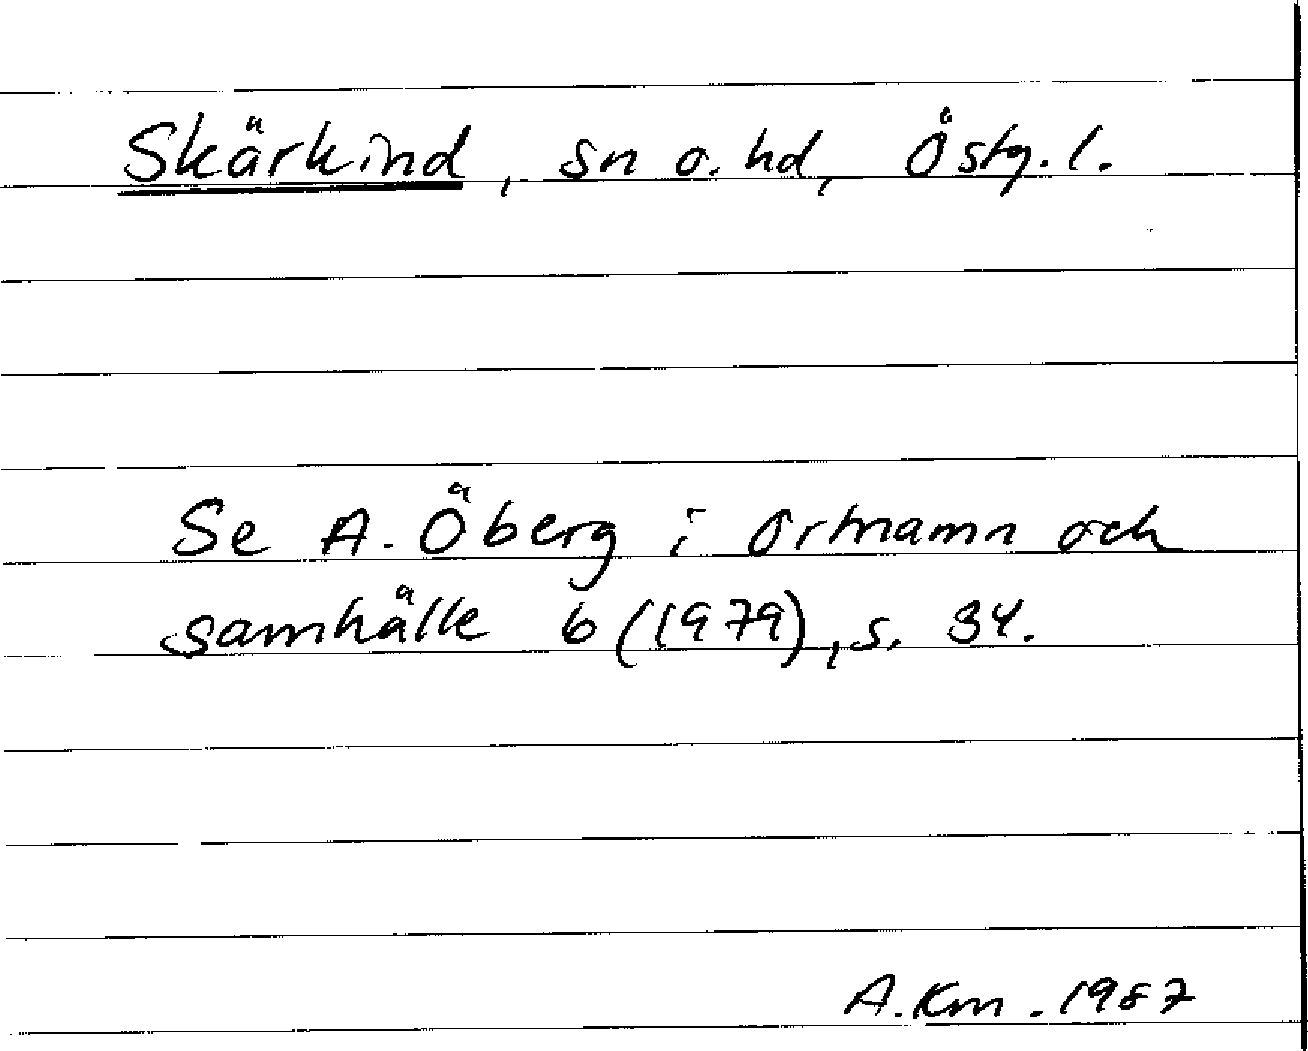 Skärkind, sn o. hd, Östg. l.
Se A. Öberg i Ortnamn och
samhälle 6 (1979), s. 34.
A. Km. 1987